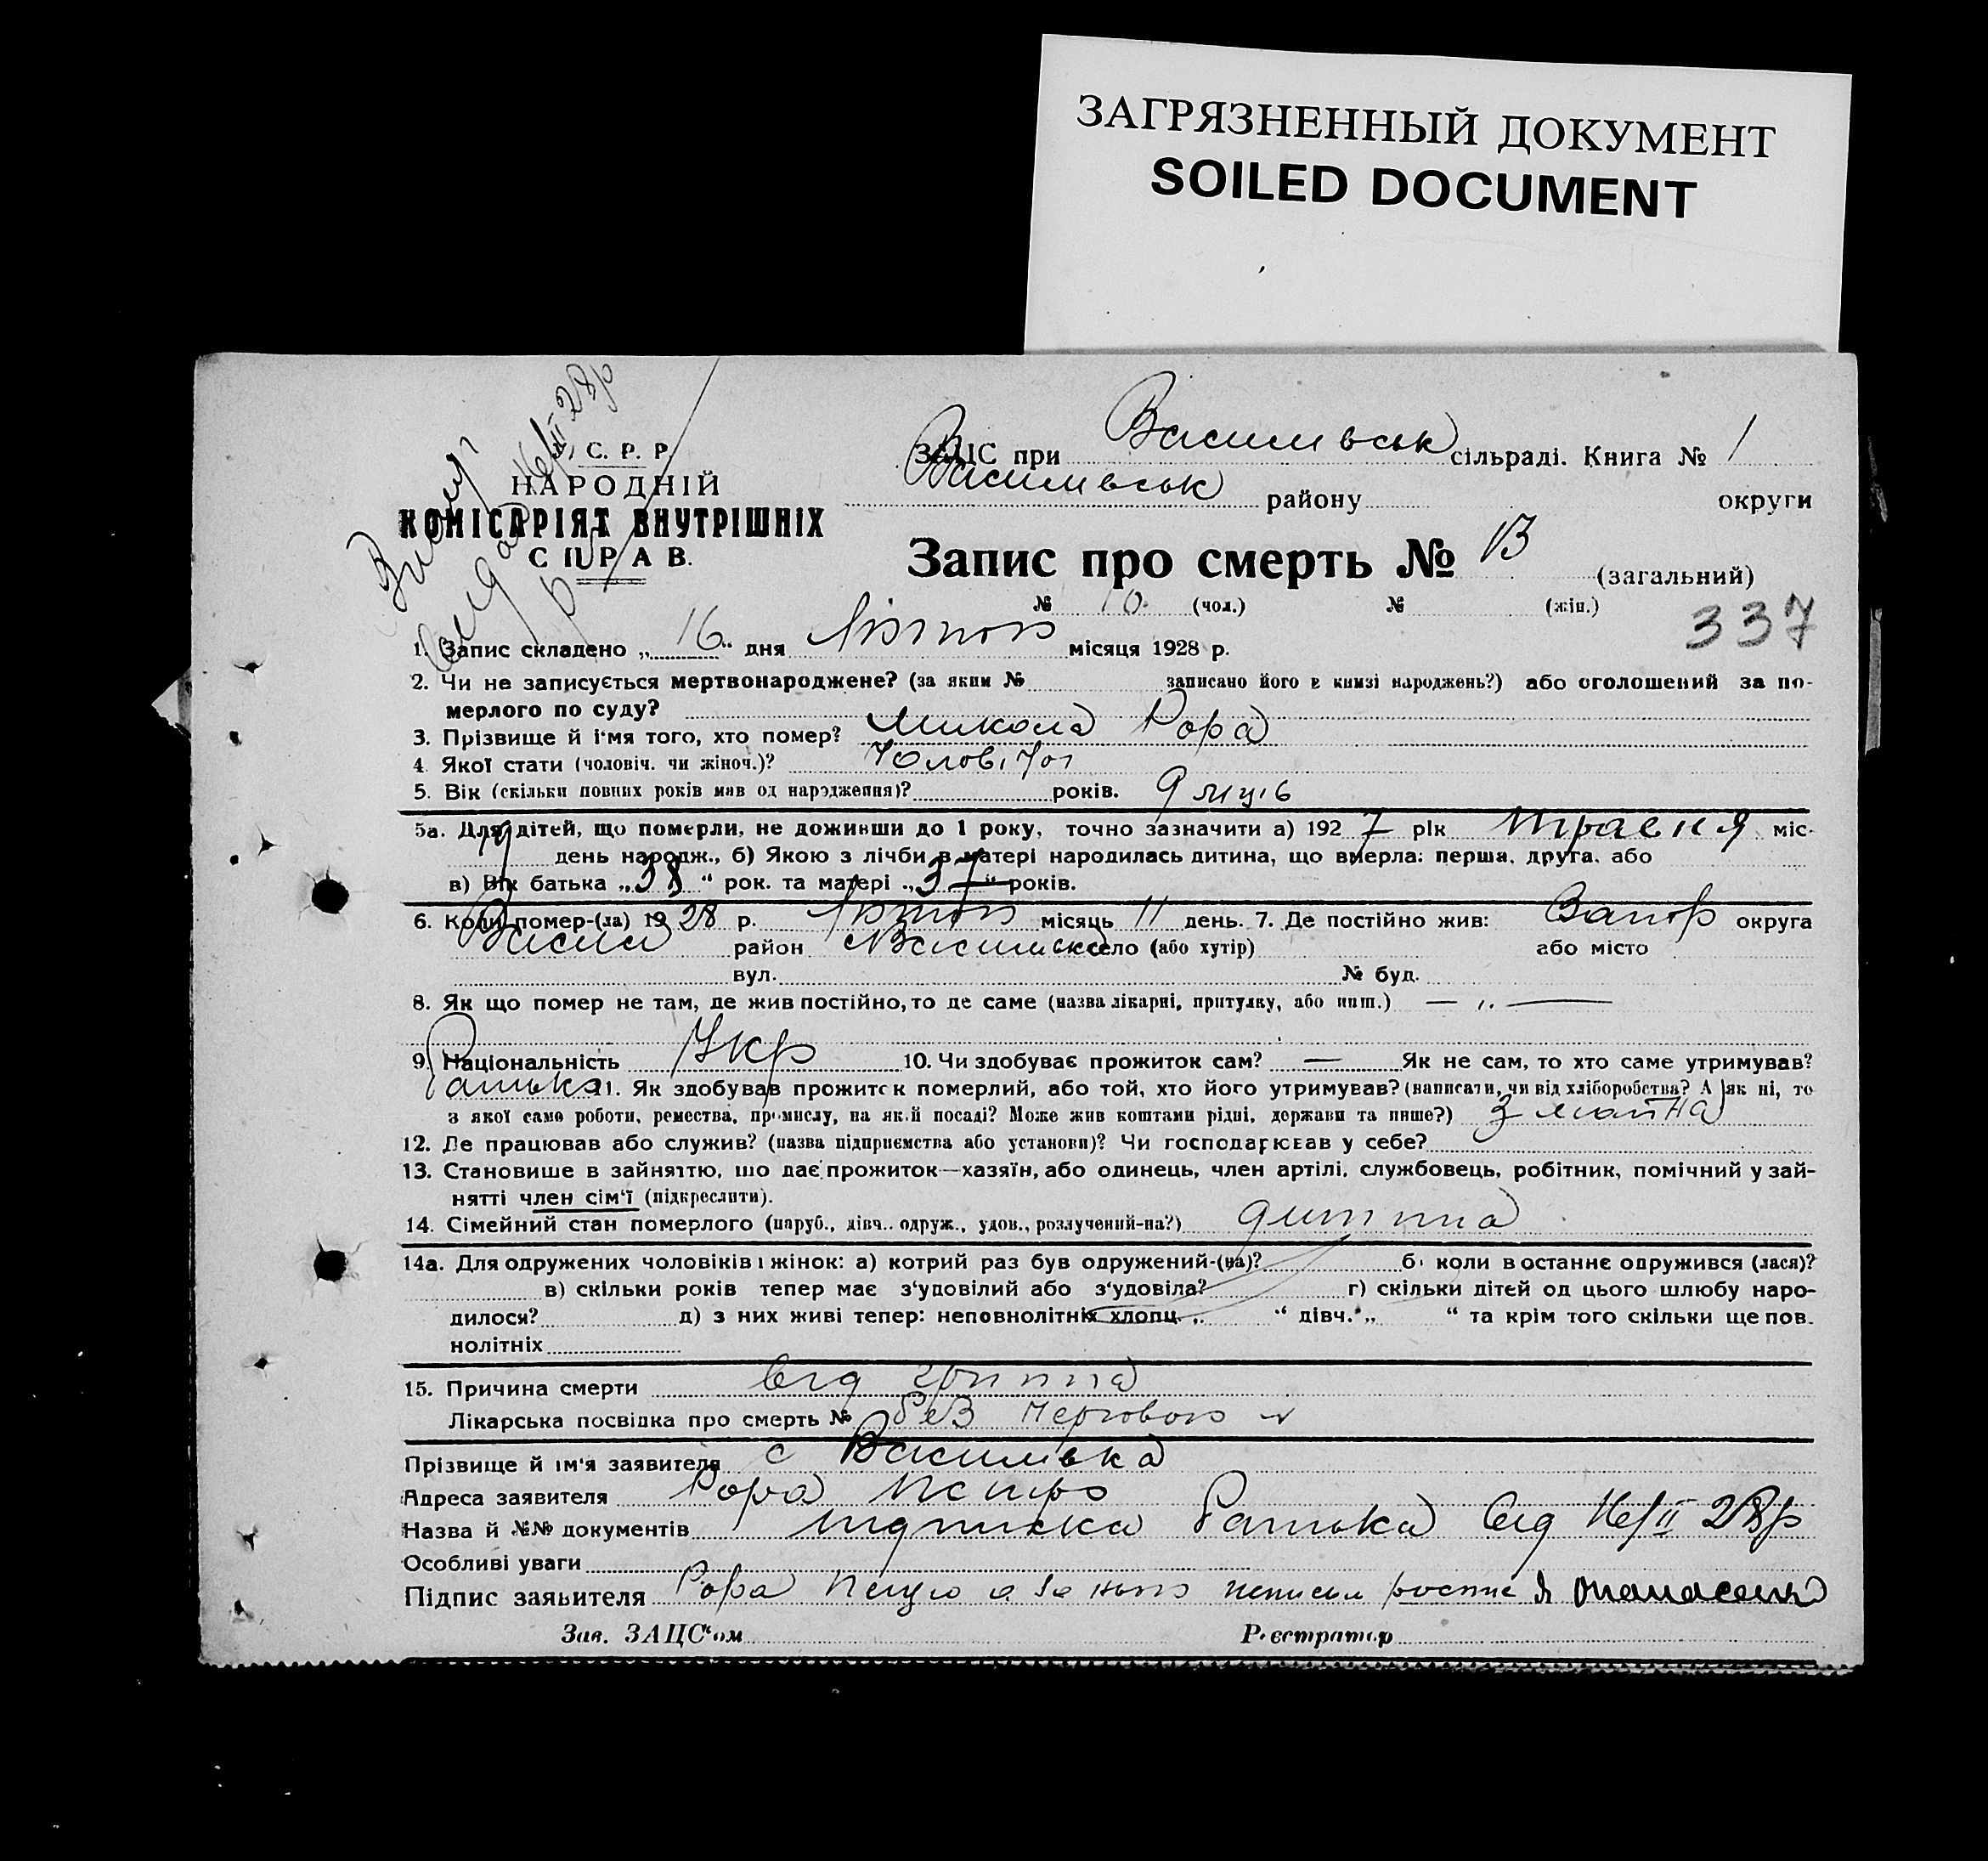 ЗАГРЯЗНЕННЫЙ ДОКУМЕНТ
SOILED DOCUMENT
С. Р. Р.
НАРОДНІЙ
КОМІСАРІЯТ ВНУТРІШНІХ
СПРАВ.
16/II 28р
ЗАЦС при Василівськ сільраді. Книга № 1
Василівськ району округи
Запис про смерть № 13 (загальний)
№ 10 (чол.) № (жін.)
337
1. Запис складено „16" дня Лютого місяця 1928 р.
2. Чи не записується мертвонароджене? (за яким № записано його в книзі народжень?) або оголошений за по-
мерлого по суду?
3. Прізвище й ім'я того, хто помер? Микола Рора
4. Якої стати (чоловіч. чи жіноч.)? Чоловічої
5. Вік (скільки повних років мав од народження)? років. 9 місців
5а. Для дітей, що померли, не доживши до 1 року, точно зазначити а) 1927 рік травня міс.
19 день народж., б) Якою з лічби в матері народилась дитина, що вмерла: перша, друга, або
в) Вік батька „38" рок. та матері „37" років.
6. Коли помер-(ла) 1928 р. Лютого місяць 11 день. 7. Де постійно жив: Запор округа
Васил район Василівка село (або хутір) або місто
вул. № буд.
8. Як що помер не там, де жив постійно, то де саме (назва лікарні, притулку, або инш.) — „ —
9. Національність Укр 10. Чи здобуває прожиток сам? — Як не сам, то хто саме утримував?
Батько 11. Як здобував прожиток померлий, або той, хто його утримував? (написати, чи від хліборобства? А як ні, то
з якої саме роботи, ремества, промислу, на якій посаді? Може жив коштами рідні, держави та инше?) З майна
12. Де працював або служив? (назва підприємства або установи)? Чи господарював у себе?
13. Становище в зайняттю, що дає прожиток—хазяїн, або одинець, член артілі, службовець, робітник, помічний у зай-
нятті член сім'ї (підкреслити).
14. Сімейний стан померлого (паруб., дівч., одруж., удов., розлучений-на?) дитина
14а. Для одружених чоловіків і жінок: а) котрий раз був одружений-(на)? б) коли востаннє одружився (лася)?
в) скільки років тепер має з'удовілий або з'удовіла? г) скільки дітей од цього шлюбу наро-
дилося? д) з них живі тепер: неповнолітніх хлопц. „ " дівч. „ " та крім того скільки ще пов.
нолітніх
15. Причина смерти від грипа
Лікарська посвідка про смерть № без
Прізвище й ім'я заявителя с Василівка
Адреса заявителя Рора Петро
Назва й №№ документів підписка батька від 16/II 28р
Особливі уваги
Підпис заявителя Рора Петро а за нього
Зав. ЗАЦС'ом Реєстратор